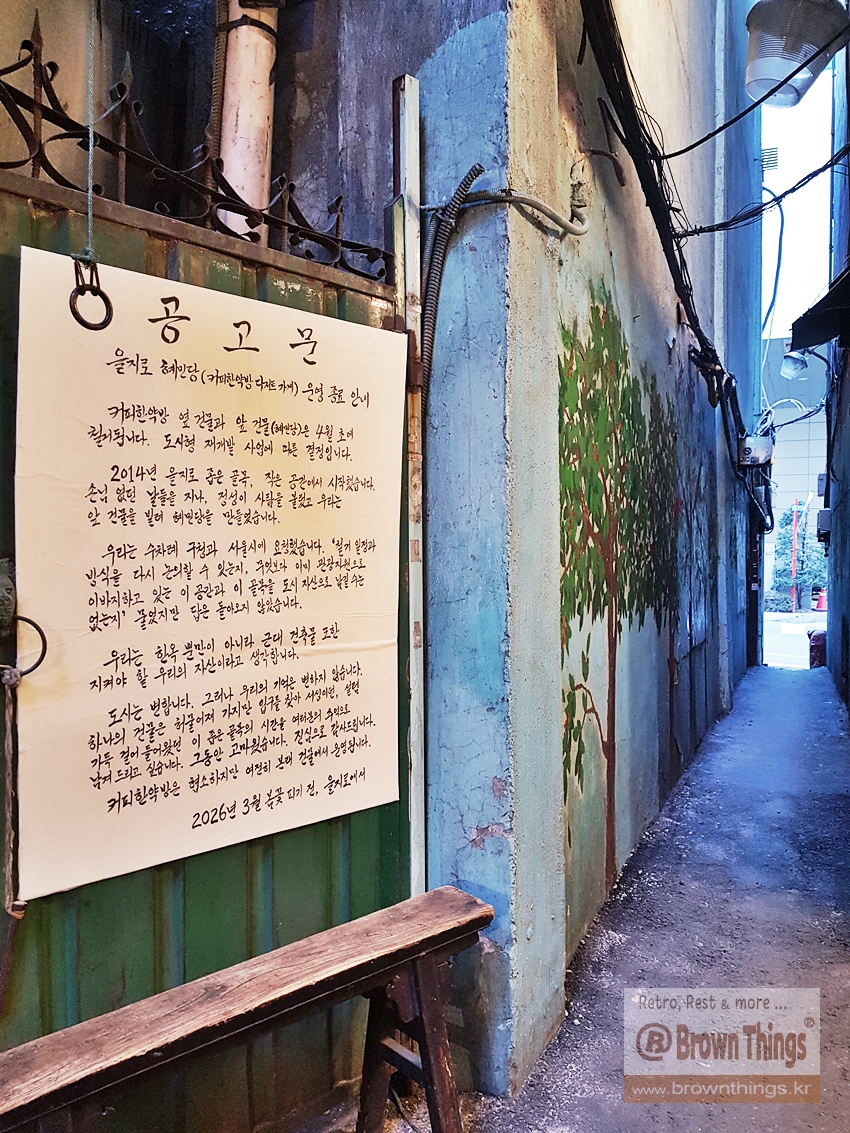 공 고 문
을지로 혜민당(커피한약방 디저트 가게) 운영 종료 안내
커피한약방 옆 건물과 앞 건물(혜민당)은 4월 초에
철거됩니다. 도시형 재개발 사업에 따른 결정입니다.
2014년 을지로 좁은 골목, 작은 공간에서 시작했습니다.
손님 없던 날들을 지나, 정성이 사람을 불렀고 우리는
앞 건물을 빌려 혜민당을 만들었습니다.
우리는 수차례 구청과 서울시에 요청했습니다. "철거 일정과
방식을 다시 논의할 수 있는지, 무엇보다 이미 관광자원으로
이바지하고 있는 이 공간과 이 골목을 도시 자산으로 남길 수는
없는지" 물었지만 답은 돌아오지 않았습니다.
우리는 한옥 뿐만이 아니라 근대 건축물 또한
지켜야 할 우리의 자산이라고 생각합니다.
도시는 변합니다. 그러나 우리의 기억은 변하지 않습니다.
하나의 건물은 허물어져 가지만 입구를 찾아 서성이던, 설렘
가득 걸어 들어왔던 이 좁은 골목의 시간을 여러분의 추억으로
남겨 드리고 싶습니다. 그동안 고마웠습니다. 진심으로 감사드립니다.
커피한약방은 협소하지만 여전히 본대 건물에서 운영됩니다.
2026년 3월 봄꽃 피기 전, 을지로에서
Retro, Rest & more ...
® Brown Things®
www.brownthings.kr